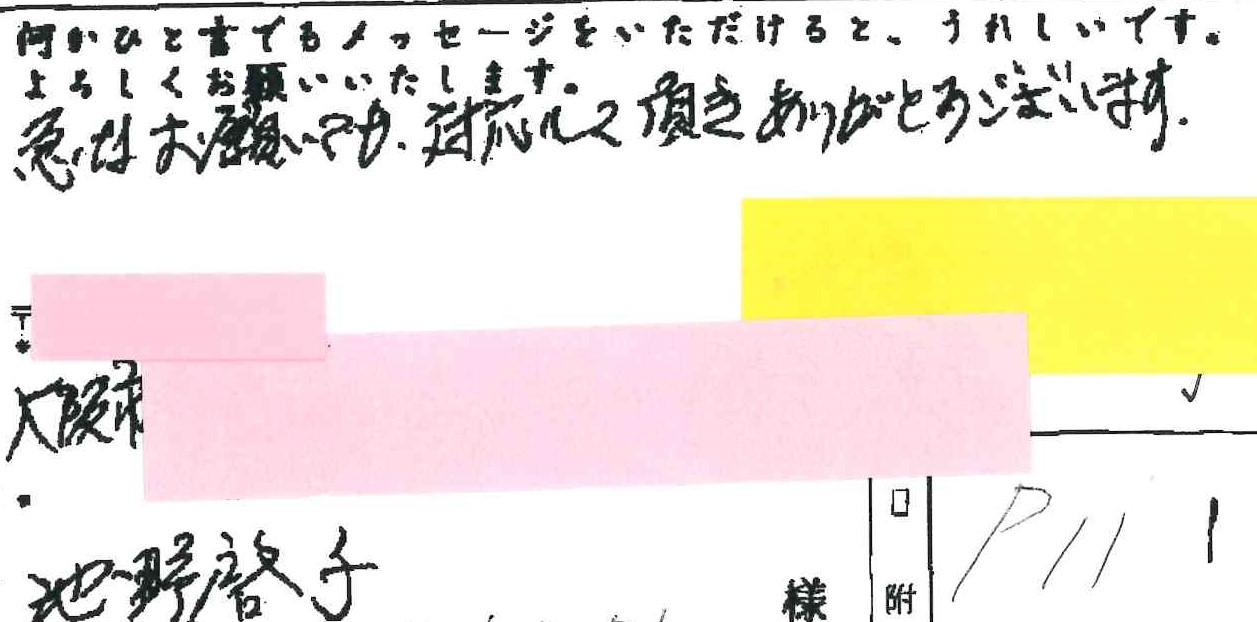 何かひと言でもメッセージをいただけると、うれしいです。
よろしくお願いいたします。
急なお願いでも、対応して頂きありがとうございます。
〒
大阪市
池野啓子 様
口
附
P11 1